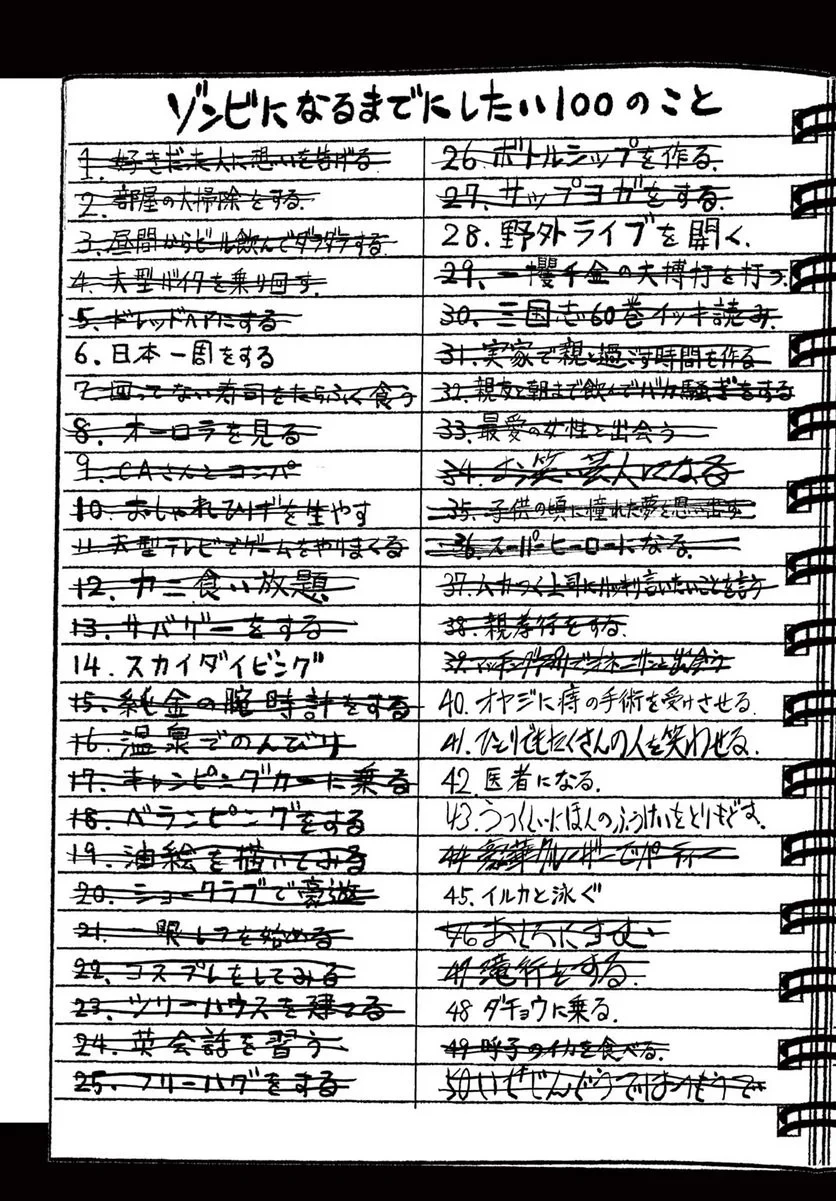 ゾンビになるまでにしたい100のこと
1. 好きだった人に想いを告げる
2. 部屋の大掃除をする.
3. 昼間からビール飲んでダラダラする
4. 大型バイクを乗り回す.
5. ドレッドヘアにする
6. 日本一周をする
7. 回ってない寿司をたらふく食う
8. オーロラを見る
9. CAさんとコンパ
10. おしゃれひげを生やす
11. 大型テレビでゲームをやりまくる
12. カニ食い放題
13. サバゲーをする
14. スカイダイビング
15. 純金の腕時計をする
16. 温泉でのんびり
17. キャンピングカーに乗る
18. ベランピングをする
19. 油絵を描いてみる
20. ショークラブで豪遊
21. 一眼レフを始める
22. コスプレをしてみる
23. ツリーハウスを建てる
24. 英会話を習う
25. フリーハグをする
26. ボトルシップを作る.
27. サップヨガをする.
28. 野外ライブを開く.
29. 一攫千金の大博打を打つ
30. 三国志60巻イッキ読み.
31. 実家で親と過ごす時間を作る
32. 親友と朝まで飲んでバカ騒ぎをする
33. 最愛の女性と出会う
34. お笑い芸人になる
35. 子供の頃に憧れた夢を思い出す
36. スーパーヒーローになる.
37. ムカつく上司にハッキリ言いたいことを言う
38. 親孝行をする.
39. マッチングアプリでオネーサンと出会う
40. オヤジに痔の手術を受けさせる.
41. ひとりでもたくさんの人を笑わせる.
42. 医者になる.
43. うつくしいにほんのふうけいをとりもどす.
44. 豪華クルーザーでパーティー
45. イルカと泳ぐ
46
47
48 ダチョウに乗る.
49. 呼子のイカを食べる.
50